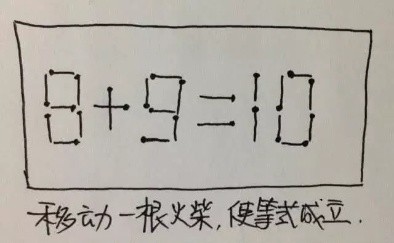 8+9=10
移动一根火柴,使等式成立.